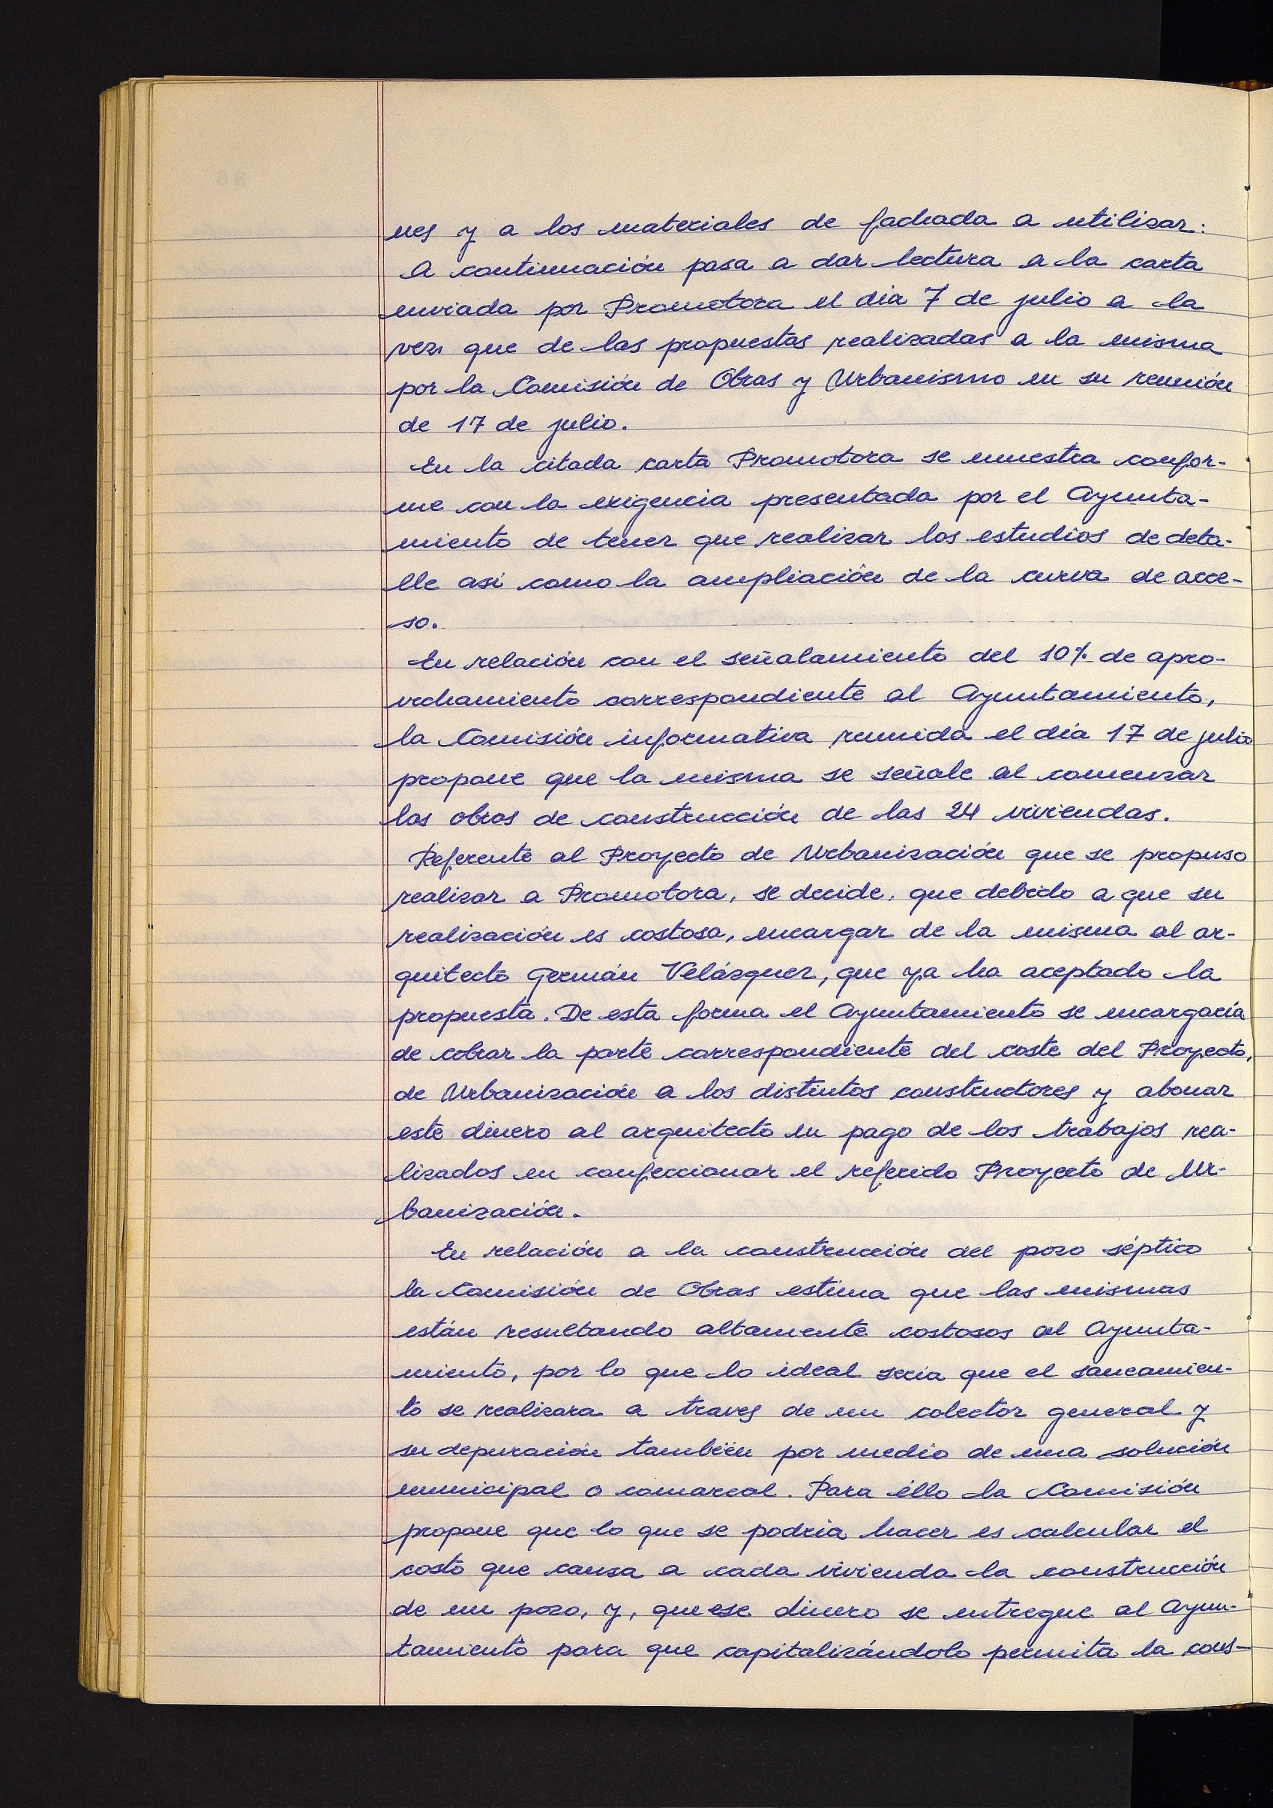 nes y a los materiales de fachada a utilizar:
A continuación pasa a dar lectura a la carta
enviada por Promotora el día 7 de julio a la
vez que de las propuestas realizadas a la misma
por la Comisión de Obras y Urbanismo en su reunión
de 17 de julio.
En la citada carta Promotora se muestra confor-
me con la exigencia presentada por el Ayunta-
miento de tener que realizar los estudios de deta-
lle así como la ampliación de la curva de acce-
so.
En relación con el señalamiento del 10% de apro-
vechamiento correspondiente al Ayuntamiento,
la Comisión informativa reunida el día 17 de julio
propone que la misma se señale al comenzar
las obras de construcción de las 24 viviendas.
Referente al Proyecto de Urbanización que se propuso
realizar a Promotora, se decide, que debido a que su
realización es costosa, encargar de la misma al ar-
quitecto Germán Velázquez, que ya ha aceptado la
propuesta. De esta forma el Ayuntamiento se encargaría
de cobrar la parte correspondiente del coste del Proyecto,
de Urbanización a los distintos constructores y abonar
este dinero al arquitecto en pago de los trabajos rea-
lizados en confeccionar el referido Proyecto de Ur-
banización.
En relación a la construcción del pozo séptico
la Comisión de Obras estima que las mismas
están resultando altamente costosos al Ayunta-
miento, por lo que lo ideal sería que el saneamien-
to se realizara a traves de un colector general y
su depuración también por medio de una solución
municipal o comarcal. Para éllo la Comisión
propone que lo que se podría hacer es calcular el
costo que causa a cada vivienda la construcción
de un pozo, y, que ese dinero se entregue al Ayun-
tamiento para que capitalizándolo permita la cons-